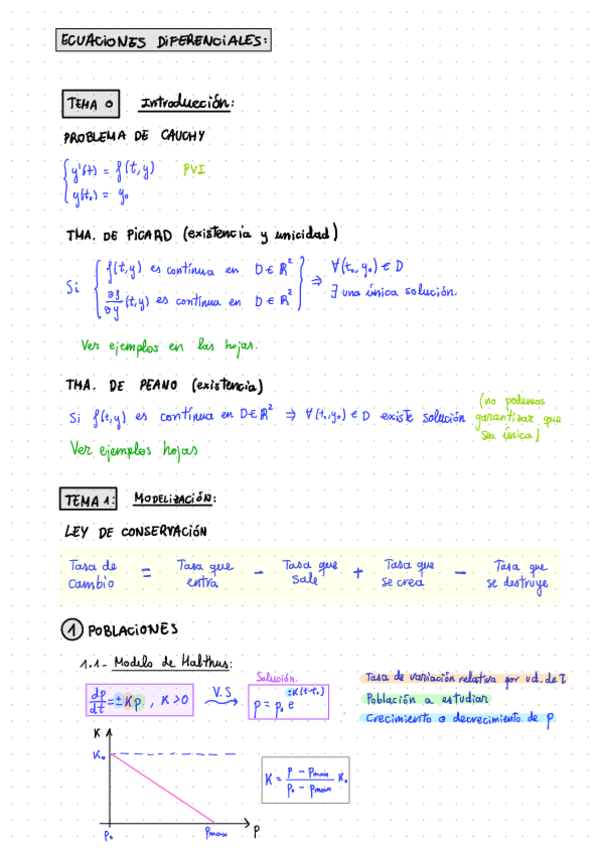 ECUACIONES DIFERENCIALES:
TEMA 0 Introducción:
PROBLEMA DE CAUCHY
{ y'(t) = f(t,y) PVI
y(t₀) = y₀
TMA. DE PICARD (existencia y unicidad)
Si { f(t,y) es contínua en D ∈ ℝ² } ⇒ ∀(t₀,y₀) ∈ D
∂f/∂y (t,y) es contínua en D ∈ ℝ² ∃ una única solución.
Ver ejemplos en las hojas.
TMA. DE PEANO (existencia)
Si f(t,y) es contínua en D∈ℝ² ⇒ ∀(t₀,y₀) ∈ D existe solución (no podemos garantizar que sea única)
Ver ejemplos hojas
TEMA 1: MODELIZACIÓN:
LEY DE CONSERVACIÓN
Tasa de cambio = Tasa que entra − Tasa que sale + Tasa que se crea − Tasa que se destruye
1 POBLACIONES
1.1- Modelo de Malthus:
dp/dt = ±Kp , K>0 V.S → Solución. p = p₀ e^±K(t-t₀)
Tasa de variación relativa por ud. de t
Población a estudiar
Crecimiento o decrecimiento de p
K
K₀
K = (p − pmax)/(p₀ − pmax) K₀
p₀ pmax p